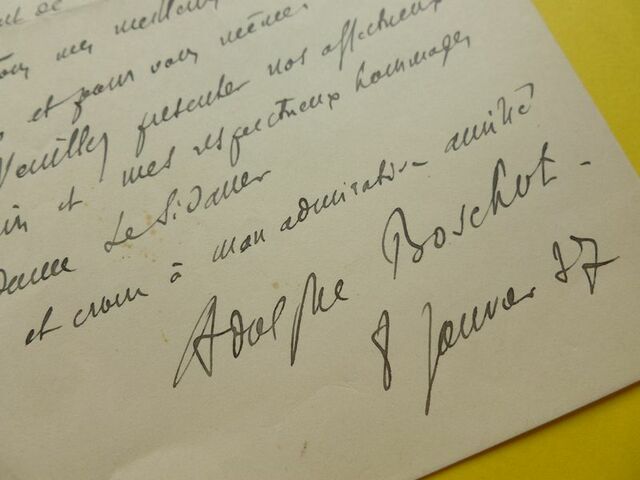 mes meilleurs
et pour vous même
Veuillez présenter nos affectueux
et mes respectueux hommages
Le Sidaner
et croire à mon admirative amitié
Adolphe Boschot -
8 janvier 37